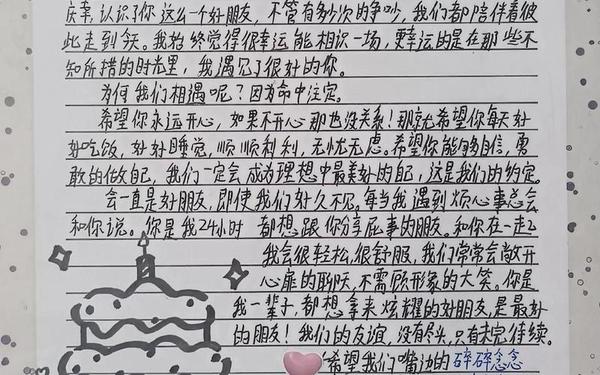 庆幸,认识了你这么一个好朋友,不管有多少次的争吵,我们都陪伴着彼
此走到今天。我始终觉得很幸运能相识一场,更幸运的是在那些不
知所措的时光里,我遇见了很好的你。
为何我们相遇呢?因为命中注定。
希望你永远开心,如果不开心那也没关系!那就希望你每天好
好吃饭,好好睡觉,顺顺利利,无忧无虑。希望你能够自信,勇
敢的做自己,我们一定会成为理想中最美好的自己,这是我们的约定。
会一直是好朋友,即使我们好久不见。每当我遇到烦心事总会
和你说。你是我24小时都想跟你分享屁事的朋友。和你在一走2
我会很轻松,很舒服,我们常常会敞开
心扉的聊天,不需顾形象的大笑。你是
我一辈子,都想拿来炫耀的好朋友,是最好
的朋友!我们的友谊,没有尽头,只有未完待续。
希望我们嘴边的碎碎念念